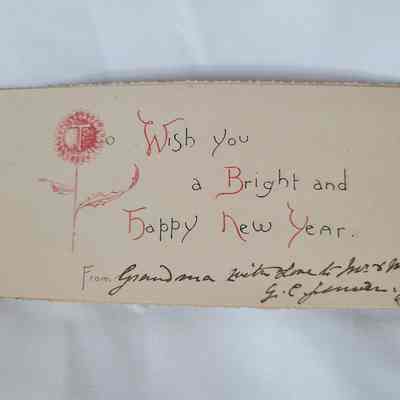 To Wish you
a Bright and
Happy New Year.
From Grandma with Love to Mr. & M
G. C.